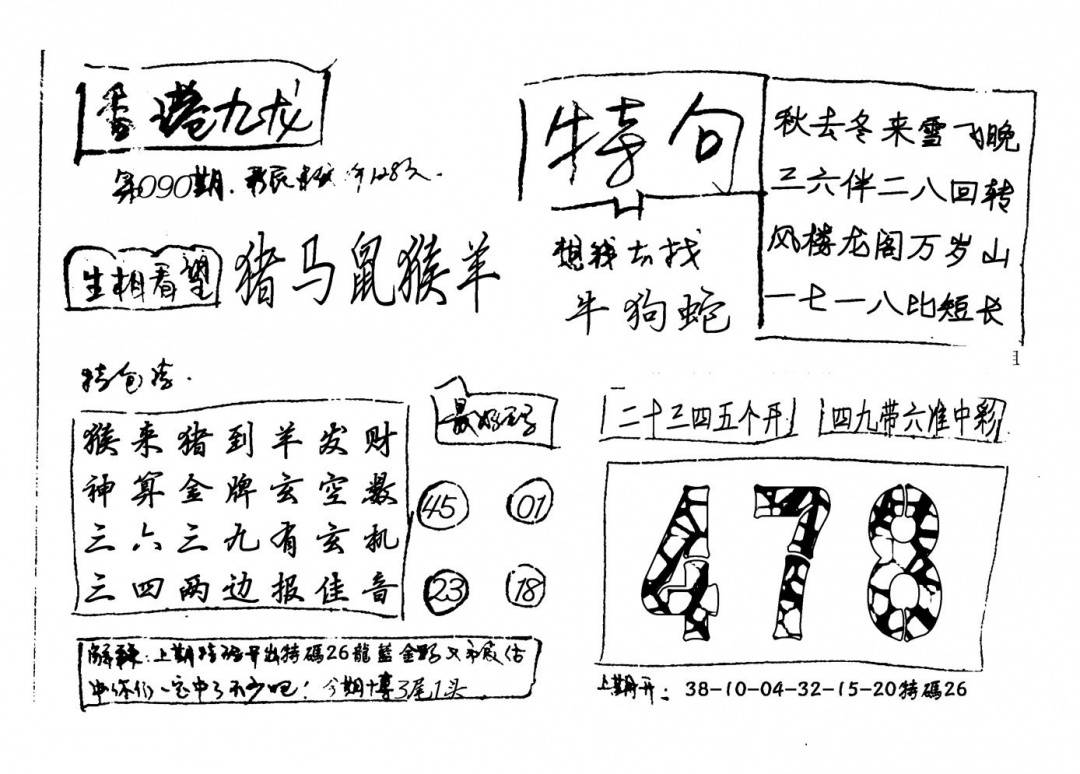 香港九龙
第090期.
生相看望
猪马鼠猴羊
特句
想我去找
牛狗蛇
秋去冬来雪飞晚
三六伴二八回转
风楼龙阁万岁山
一七一八比短长
猴来猪到羊发财
神算金牌玄空数
三六三九有玄机
三四两边报佳音
最好
45
01
23
18
二十三四五个开
四九带六准中彩
478
解:上期特码开出特碼26龍藍
中你们一定中了不少吧!今期博3尾1头
上期开:38-10-04-32-15-20特碼26